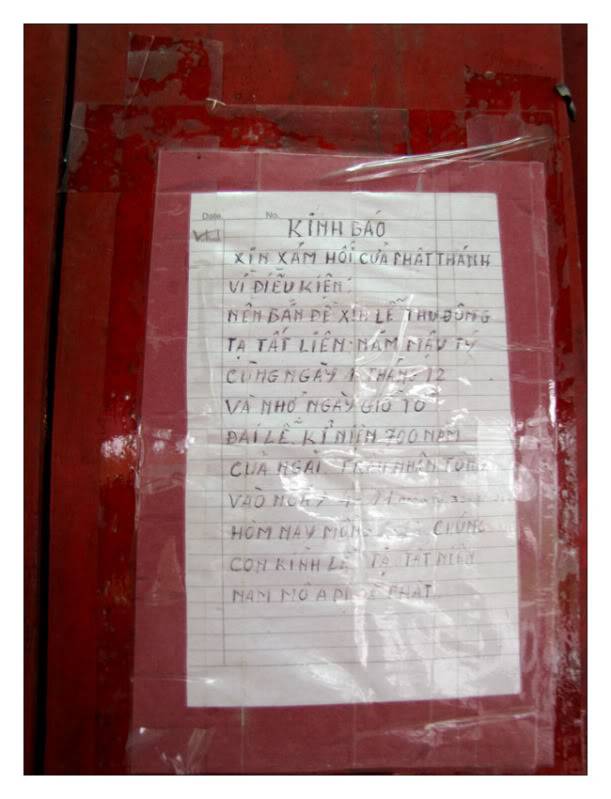 Date No.
KÍNH BÁO
XIN XÁM HỐI CỦA PHẬT THÁNH
VÌ ĐIỀU KIÊN:
NÊN BẢN ĐỀ XIN LỄ THU ĐÔNG
TẠ TẤT LIÊN NĂM MẬU TÝ
CÙNG NGÀY 1 THÁNG 12
VÀ NHỚ NGÀY GIỖ TỔ
ĐẠI LỄ KỈ NIỆN 700 NĂM
CỦA NGÀI TRẦN NHÂN TÔNG
VÀO
HÔM NAY MỒNG CHÚNG
CON KÍNH LỄ TẠ TẤT NIÊN
NAM MÔ A DI ĐÀ PHẬT